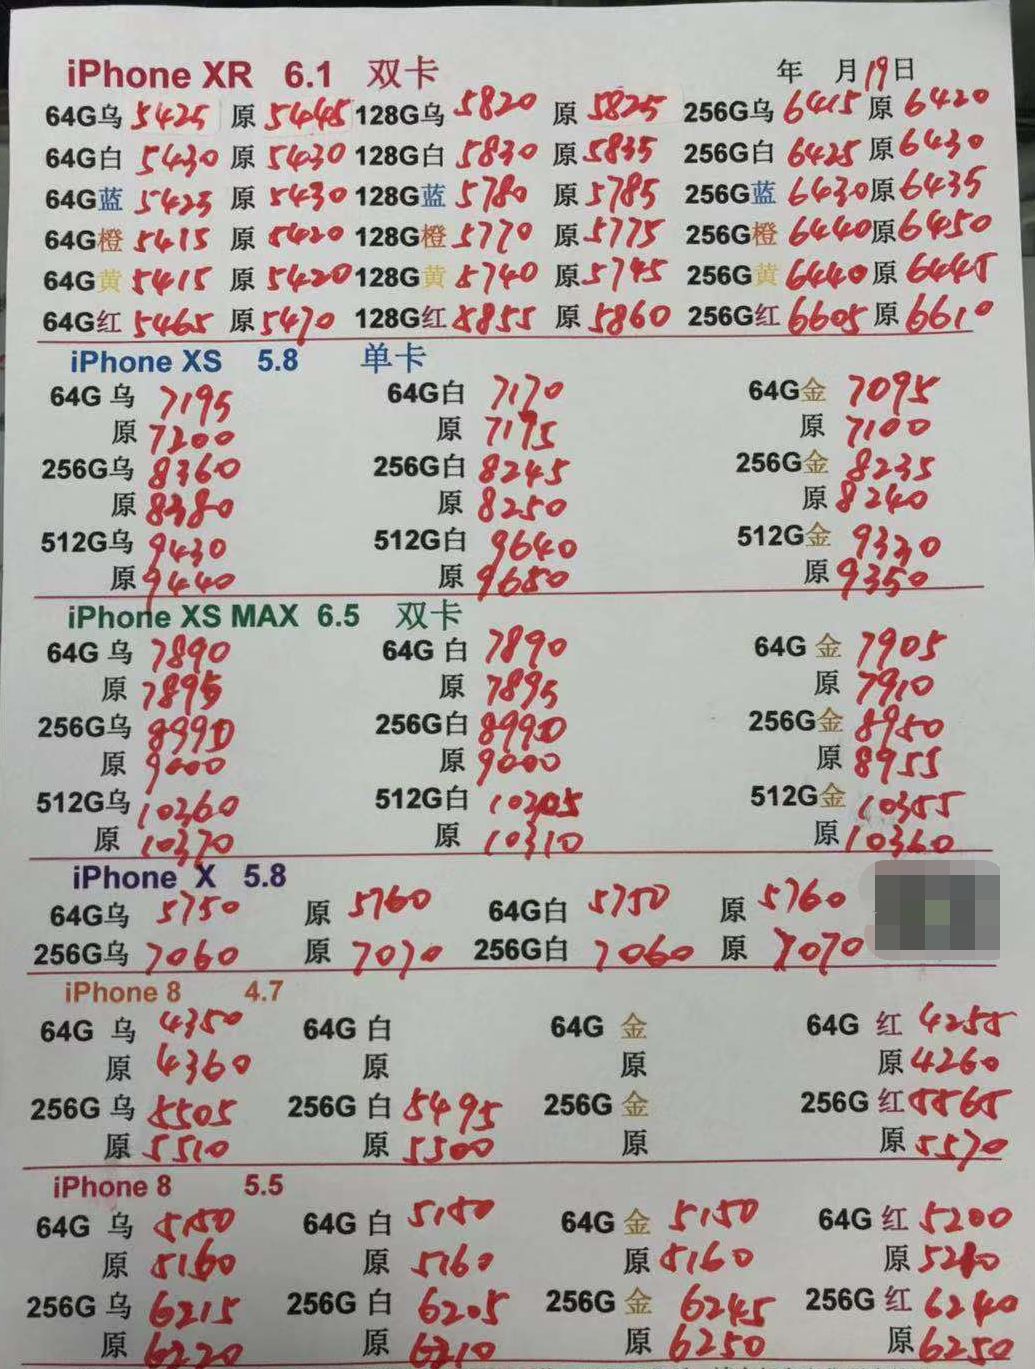 iPhone XR 6.1 双卡 年 月19日
64G乌 5425 原 5445 128G乌 5820 原 5825 256G乌 6415 原 6420
64G白 5430 原 5430 128G白 5830 原 5835 256G白 6425 原 6430
64G蓝 5425 原 5430 128G蓝 5780 原 5785 256G蓝 6430 原 6435
64G橙 5415 原 5420 128G橙 5770 原 5775 256G橙 6440 原 6450
64G黄 5415 原 5420 128G黄 5740 原 5745 256G黄 6440 原 6445
64G红 5465 原 5470 128G红 5855 原 5860 256G红 6605 原 6610
iPhone XS 5.8 单卡
64G 乌 7195 64G白 7170 64G金 7095
原 7200 原 7175 原 7100
256G乌 8360 256G白 8245 256G金 8235
原 8380 原 8250 原 8240
512G乌 9430 512G白 9640 512G金 9330
原 9440 原 9650 原 9350
iPhone XS MAX 6.5 双卡
64G 乌 7890 64G 白 7890 64G 金 7905
原 7895 原 7895 原 7910
256G乌 8990 256G白 8990 256G金 8950
原 9000 原 9000 原 8955
512G乌 10360 512G白 10305 512G金 10355
原 10370 原 10310 原 10360
iPhone X 5.8
64G乌 5750 原 5760 64G白 5750 原 5760
256G乌 7060 原 7070 256G白 7060 原 7070
iPhone 8 4.7
64G 乌 4350 64G 白 64G 金 64G 红 4255
原 4360 原 原 原 4260
256G 乌 5505 256G 白 5495 256G 金 256G 红 5565
原 5510 原 5500 原 原 5570
iPhone 8 5.5
64G 乌 5150 64G 白 5150 64G 金 5150 64G 红 5200
原 5160 原 5160 原 5160 原
256G 乌 6215 256G 白 6205 256G 金 6245 256G 红 6240
原 6220 原 6210 原 6250 原 6250